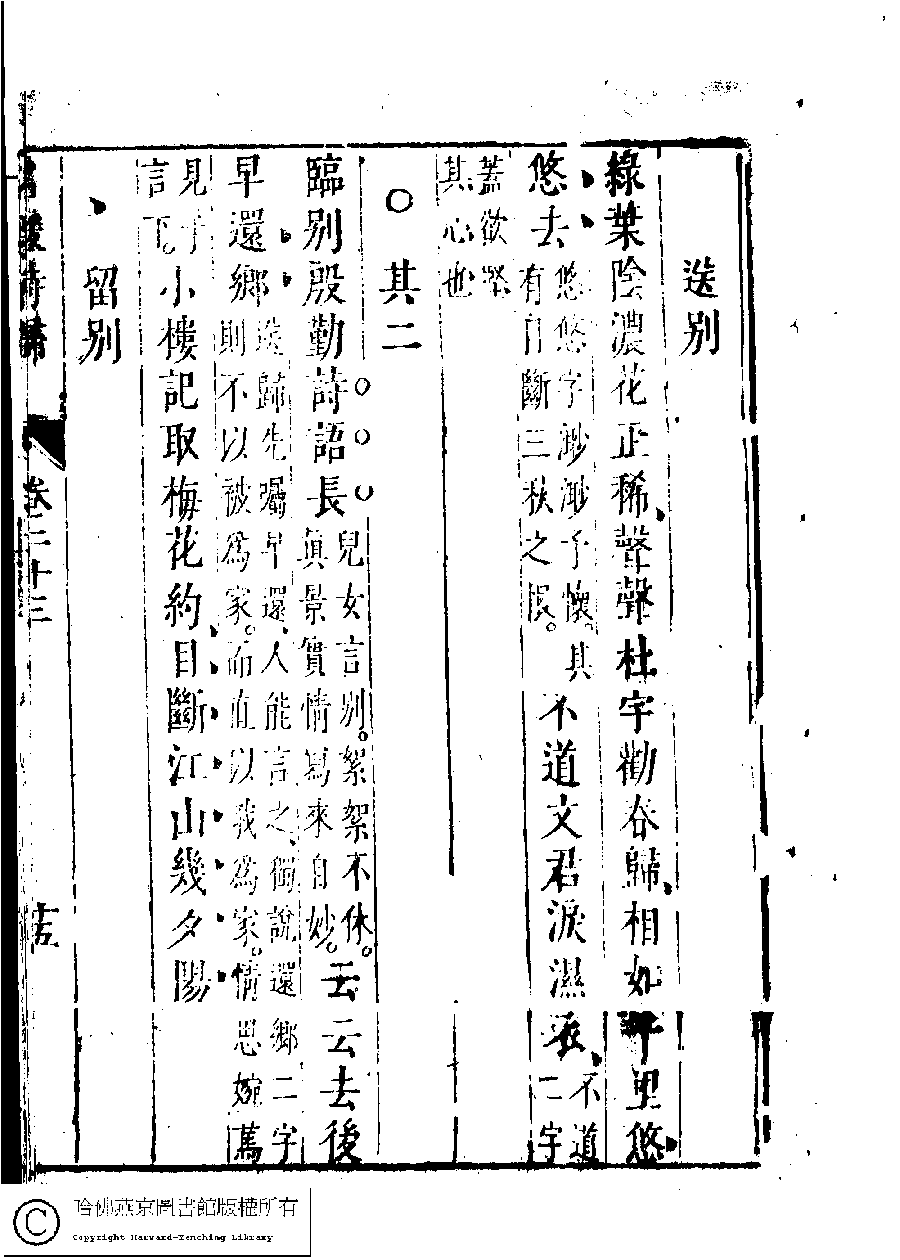 送别
綠葉陰濃花正稀、聲聲杜宇勸春歸、相如千里悠
悠去
悠悠字渺渺予懷。其
有目斷三秋之恨。
不道文君淚濕衣、
不道
二字
蓋欲堅
其心也
○其二
臨别殷勤詩語長
兒女言别。絮絮不休。
真景實情寫來自妙。
云云去後
早還鄉
送歸先囑早還、人能言之、獨說還鄉二字
則不以被為家。而直以我為家。情思婉
見于
言下。
小樓記取梅花約目斷江山幾夕陽
留别
名媛詩歸
卷二十三
十五
哈佛燕京圖書館版權所有
Copyright Harvard-Yenching Library